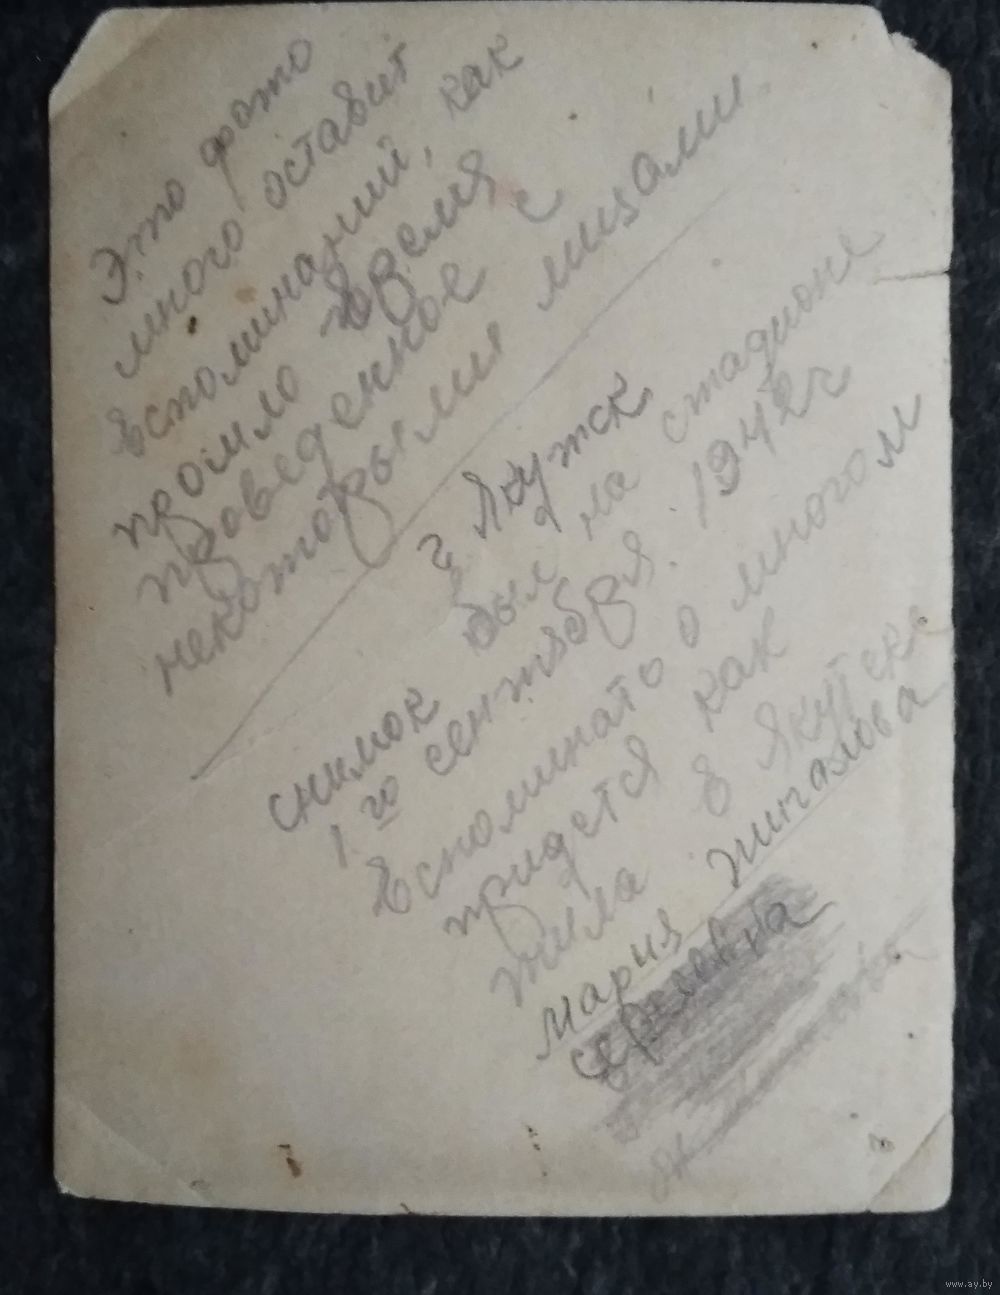 Это фото
много оставит
вспоминаний, как
прошло время
проведенное с
некоторыми лицами
г. Якутск
снимок был на стадионе
1го сентября. 1942г
вспоминать о многом
придется как
жила в Якутске
Мария
сергеевна
www.ay.by